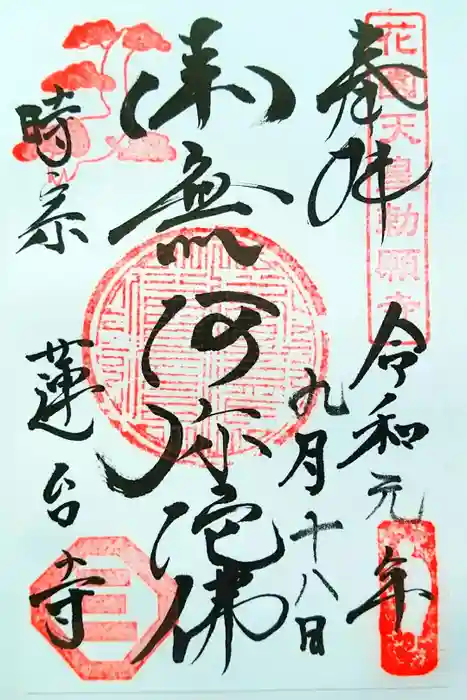 花園天皇勅願寺
奉拝
令和元年
九月十八日
南無阿弥陀佛
時宗
蓮台寺